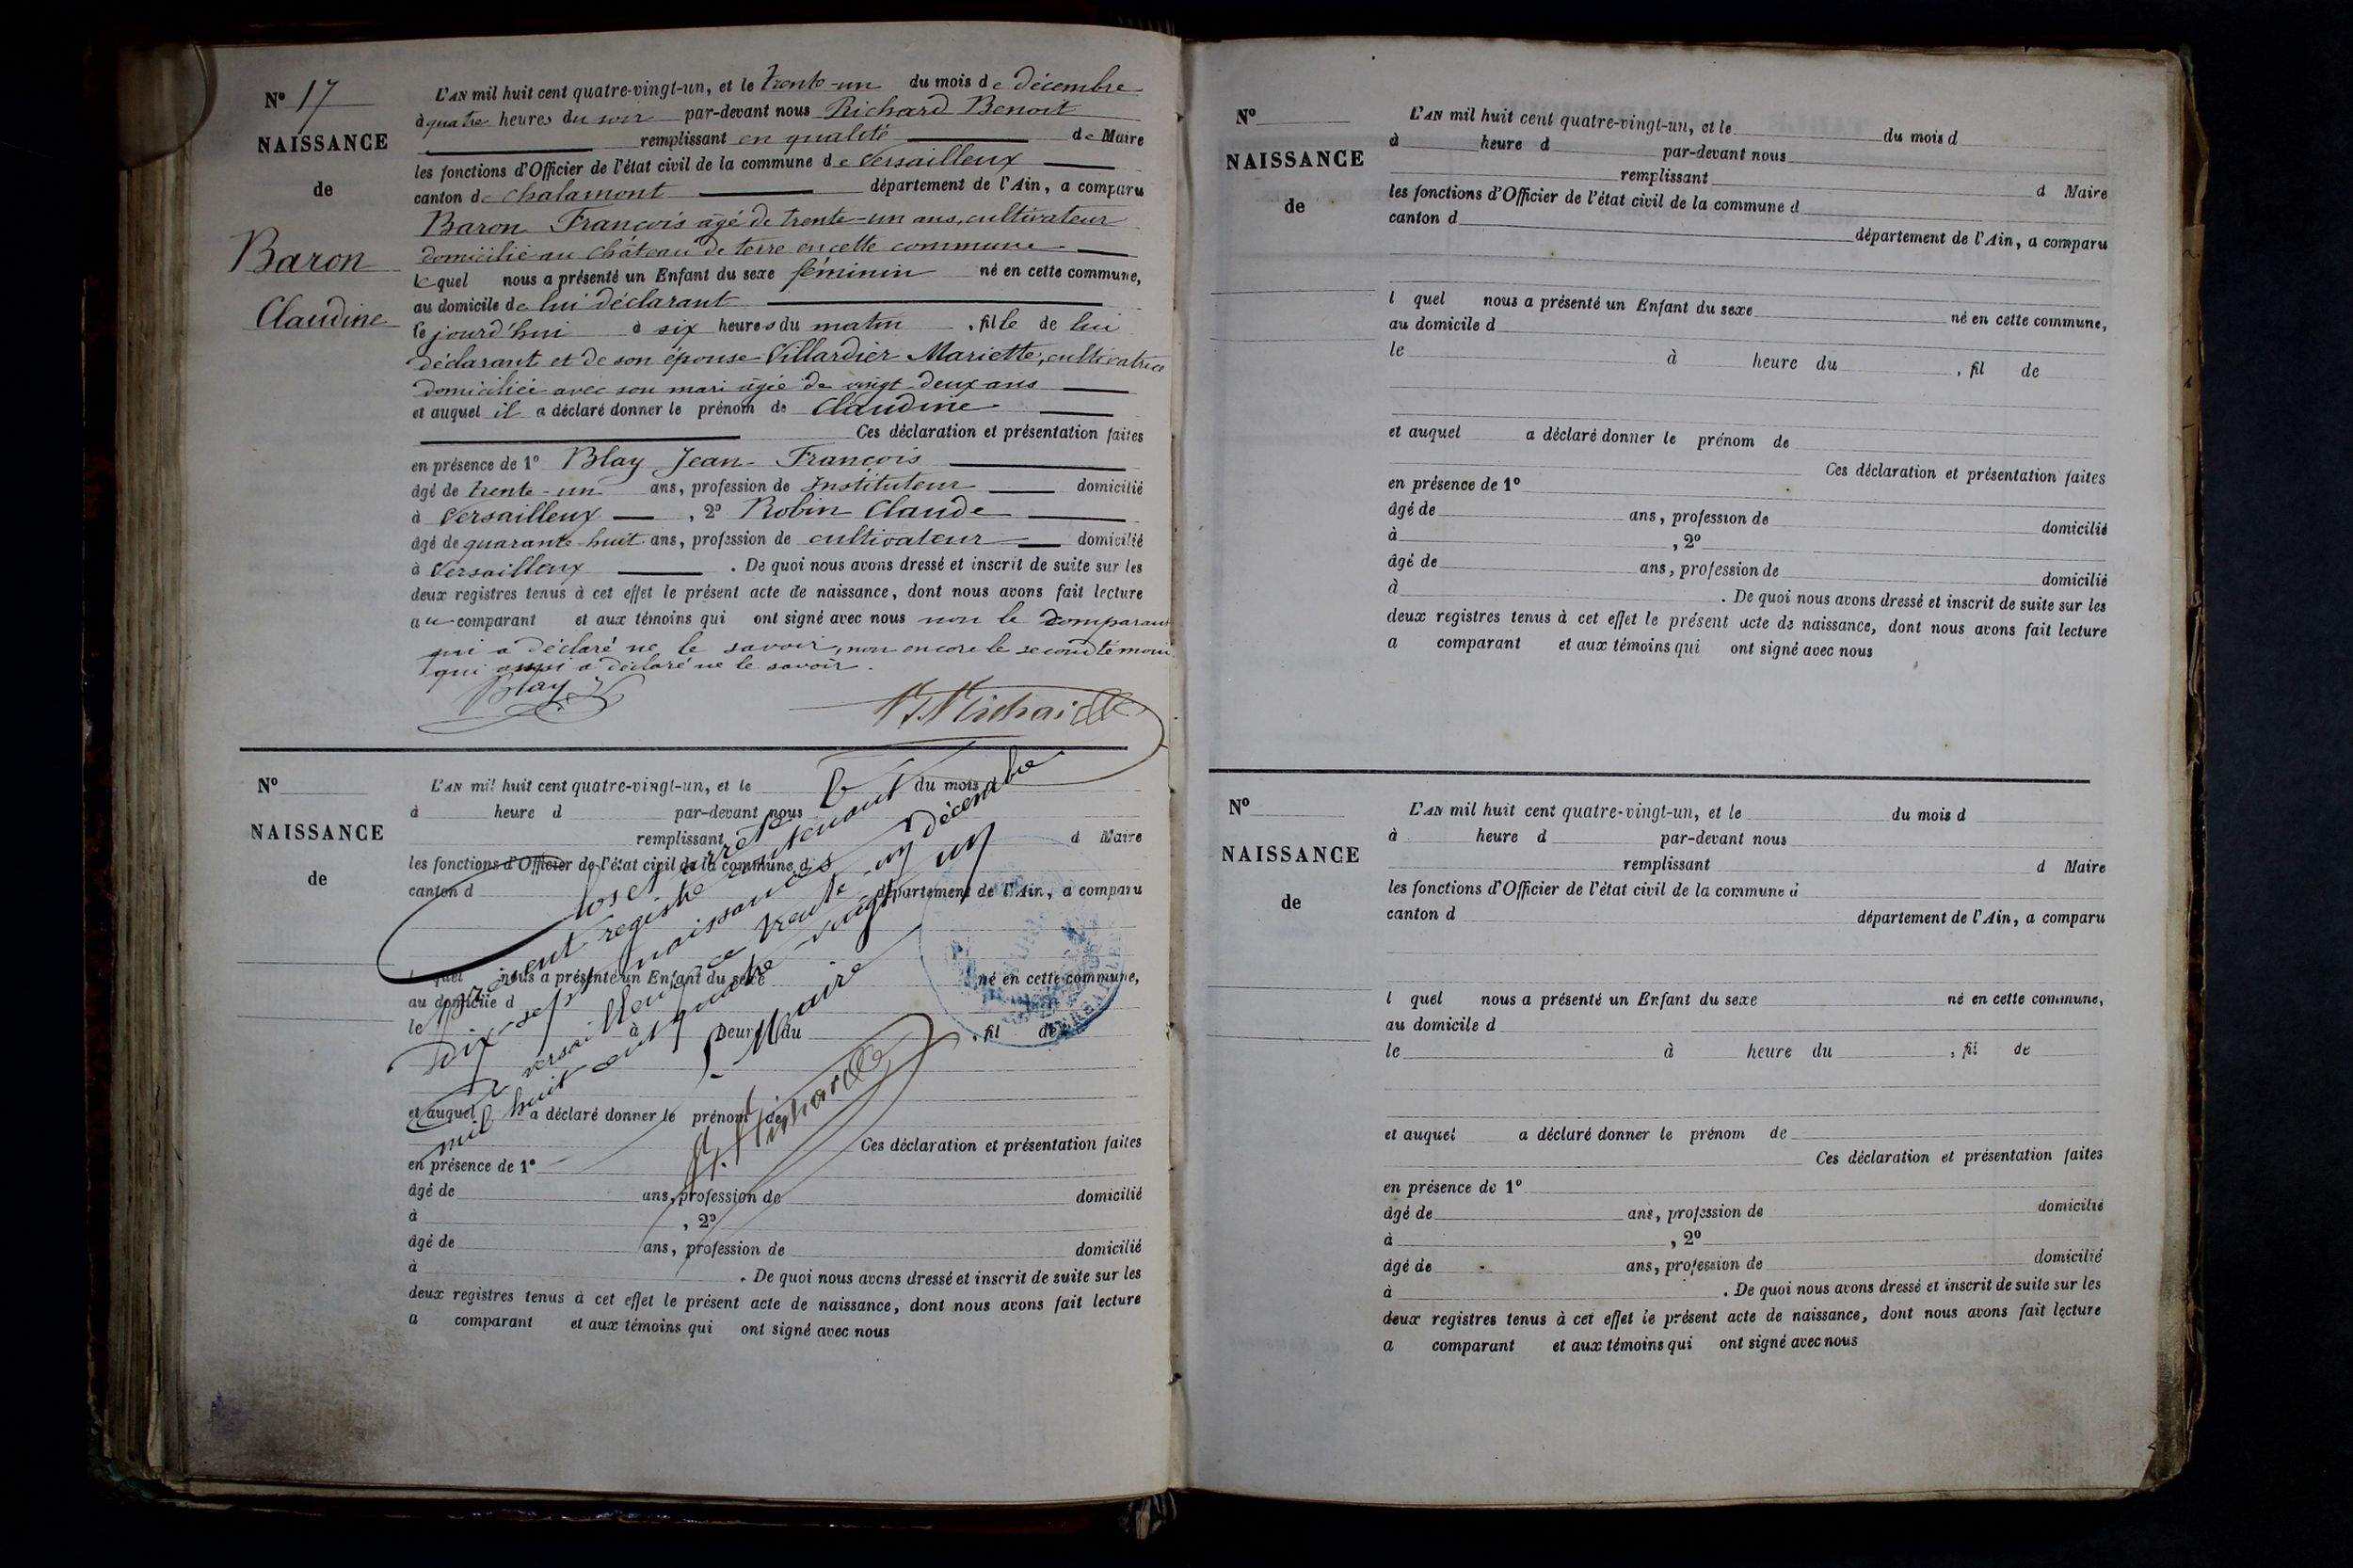 N° 17
NAISSANCE
de
Baron
Claudine
L'AN mil huit cent quatre-vingt-un, et le trente-un du mois de décembre
à quatre heures du soir par-devant nous Richard Benoit
remplissant en qualité de Maire
les fonctions d'Officier de l'état civil de la commune de Versailleux
canton de Chalamont département de l'Ain, a comparu
Baron François âgé de trente-un ans, cultivateur
domicilié au château de terre en cette commune
lequel nous a présenté un Enfant du sexe féminin né en cette commune,
au domicile de lui déclarant
le jourd'hui à six heures du matin, fille de lui
déclarant et de son épouse Villardier Mariette, cultivatrice
domiciliée avec son mari âgée de vingt-deux ans
et auquel il a déclaré donner le prénom de Claudine
Ces déclaration et présentation faites
en présence de 1° Blay Jean-François
âgé de trente-un ans, profession de Instituteur domicilié
à Versailleux, 2° Robin Claude
âgé de quarante-huit ans, profession de cultivateur domicilié
à Versailleux. De quoi nous avons dressé et inscrit de suite sur les
deux registres tenus à cet effet le présent acte de naissance, dont nous avons fait lecture
au comparant et aux témoins qui ont signé avec nous non le comparant
qui a déclaré ne le savoir, non encore le second témoin
qui aussi a déclaré ne le savoir.
Blay
N°
NAISSANCE
de
L'AN mil huit cent quatre-vingt-un, et le du mois
à heure d par-devant nous
remplissant d Maire
les fonctions d'Officier de l'état civil de la commune d
canton d département de l'Ain, a comparu
l quel nous a présenté un Enfant du sexe né en cette commune,
au domicile d
le à heure du , fil de
et auquel a déclaré donner le prénom de
Ces déclaration et présentation faites
en présence de 1°
âgé de ans, profession de domicilié
à , 2°
âgé de ans, profession de domicilié
à . De quoi nous avons dressé et inscrit de suite sur les
deux registres tenus à cet effet le présent acte de naissance, dont nous avons fait lecture
a comparant et aux témoins qui ont signé avec nous
Clos et arrêté le
présent registre contenant
dix-sept naissances
à Versailleux ce trente-un décembre
mil huit cent quatre-vingt un
Le Maire
N°
NAISSANCE
de
L'AN mil huit cent quatre-vingt-un, et le du mois d
à heure d par-devant nous
remplissant d Maire
les fonctions d'Officier de l'état civil de la commune d
canton d département de l'Ain, a comparu
l quel nous a présenté un Enfant du sexe né en cette commune,
au domicile d
le à heure du , fil de
et auquel a déclaré donner le prénom de
Ces déclaration et présentation faites
en présence de 1°
âgé de ans, profession de domicilié
à , 2°
âgé de ans, profession de domicilié
à . De quoi nous avons dressé et inscrit de suite sur les
deux registres tenus à cet effet le présent acte de naissance, dont nous avons fait lecture
a comparant et aux témoins qui ont signé avec nous
N°
NAISSANCE
de
L'AN mil huit cent quatre-vingt-un, et le du mois d
à heure d par-devant nous
remplissant d Maire
les fonctions d'Officier de l'état civil de la commune d
canton d département de l'Ain, a comparu
l quel nous a présenté un Enfant du sexe né en cette commune,
au domicile d
le à heure du , fil de
et auquel a déclaré donner le prénom de
Ces déclaration et présentation faites
en présence de 1°
âgé de ans, profession de domicilié
à , 2°
âgé de ans, profession de domicilié
à . De quoi nous avons dressé et inscrit de suite sur les
deux registres tenus à cet effet le présent acte de naissance, dont nous avons fait lecture
a comparant et aux témoins qui ont signé avec nous